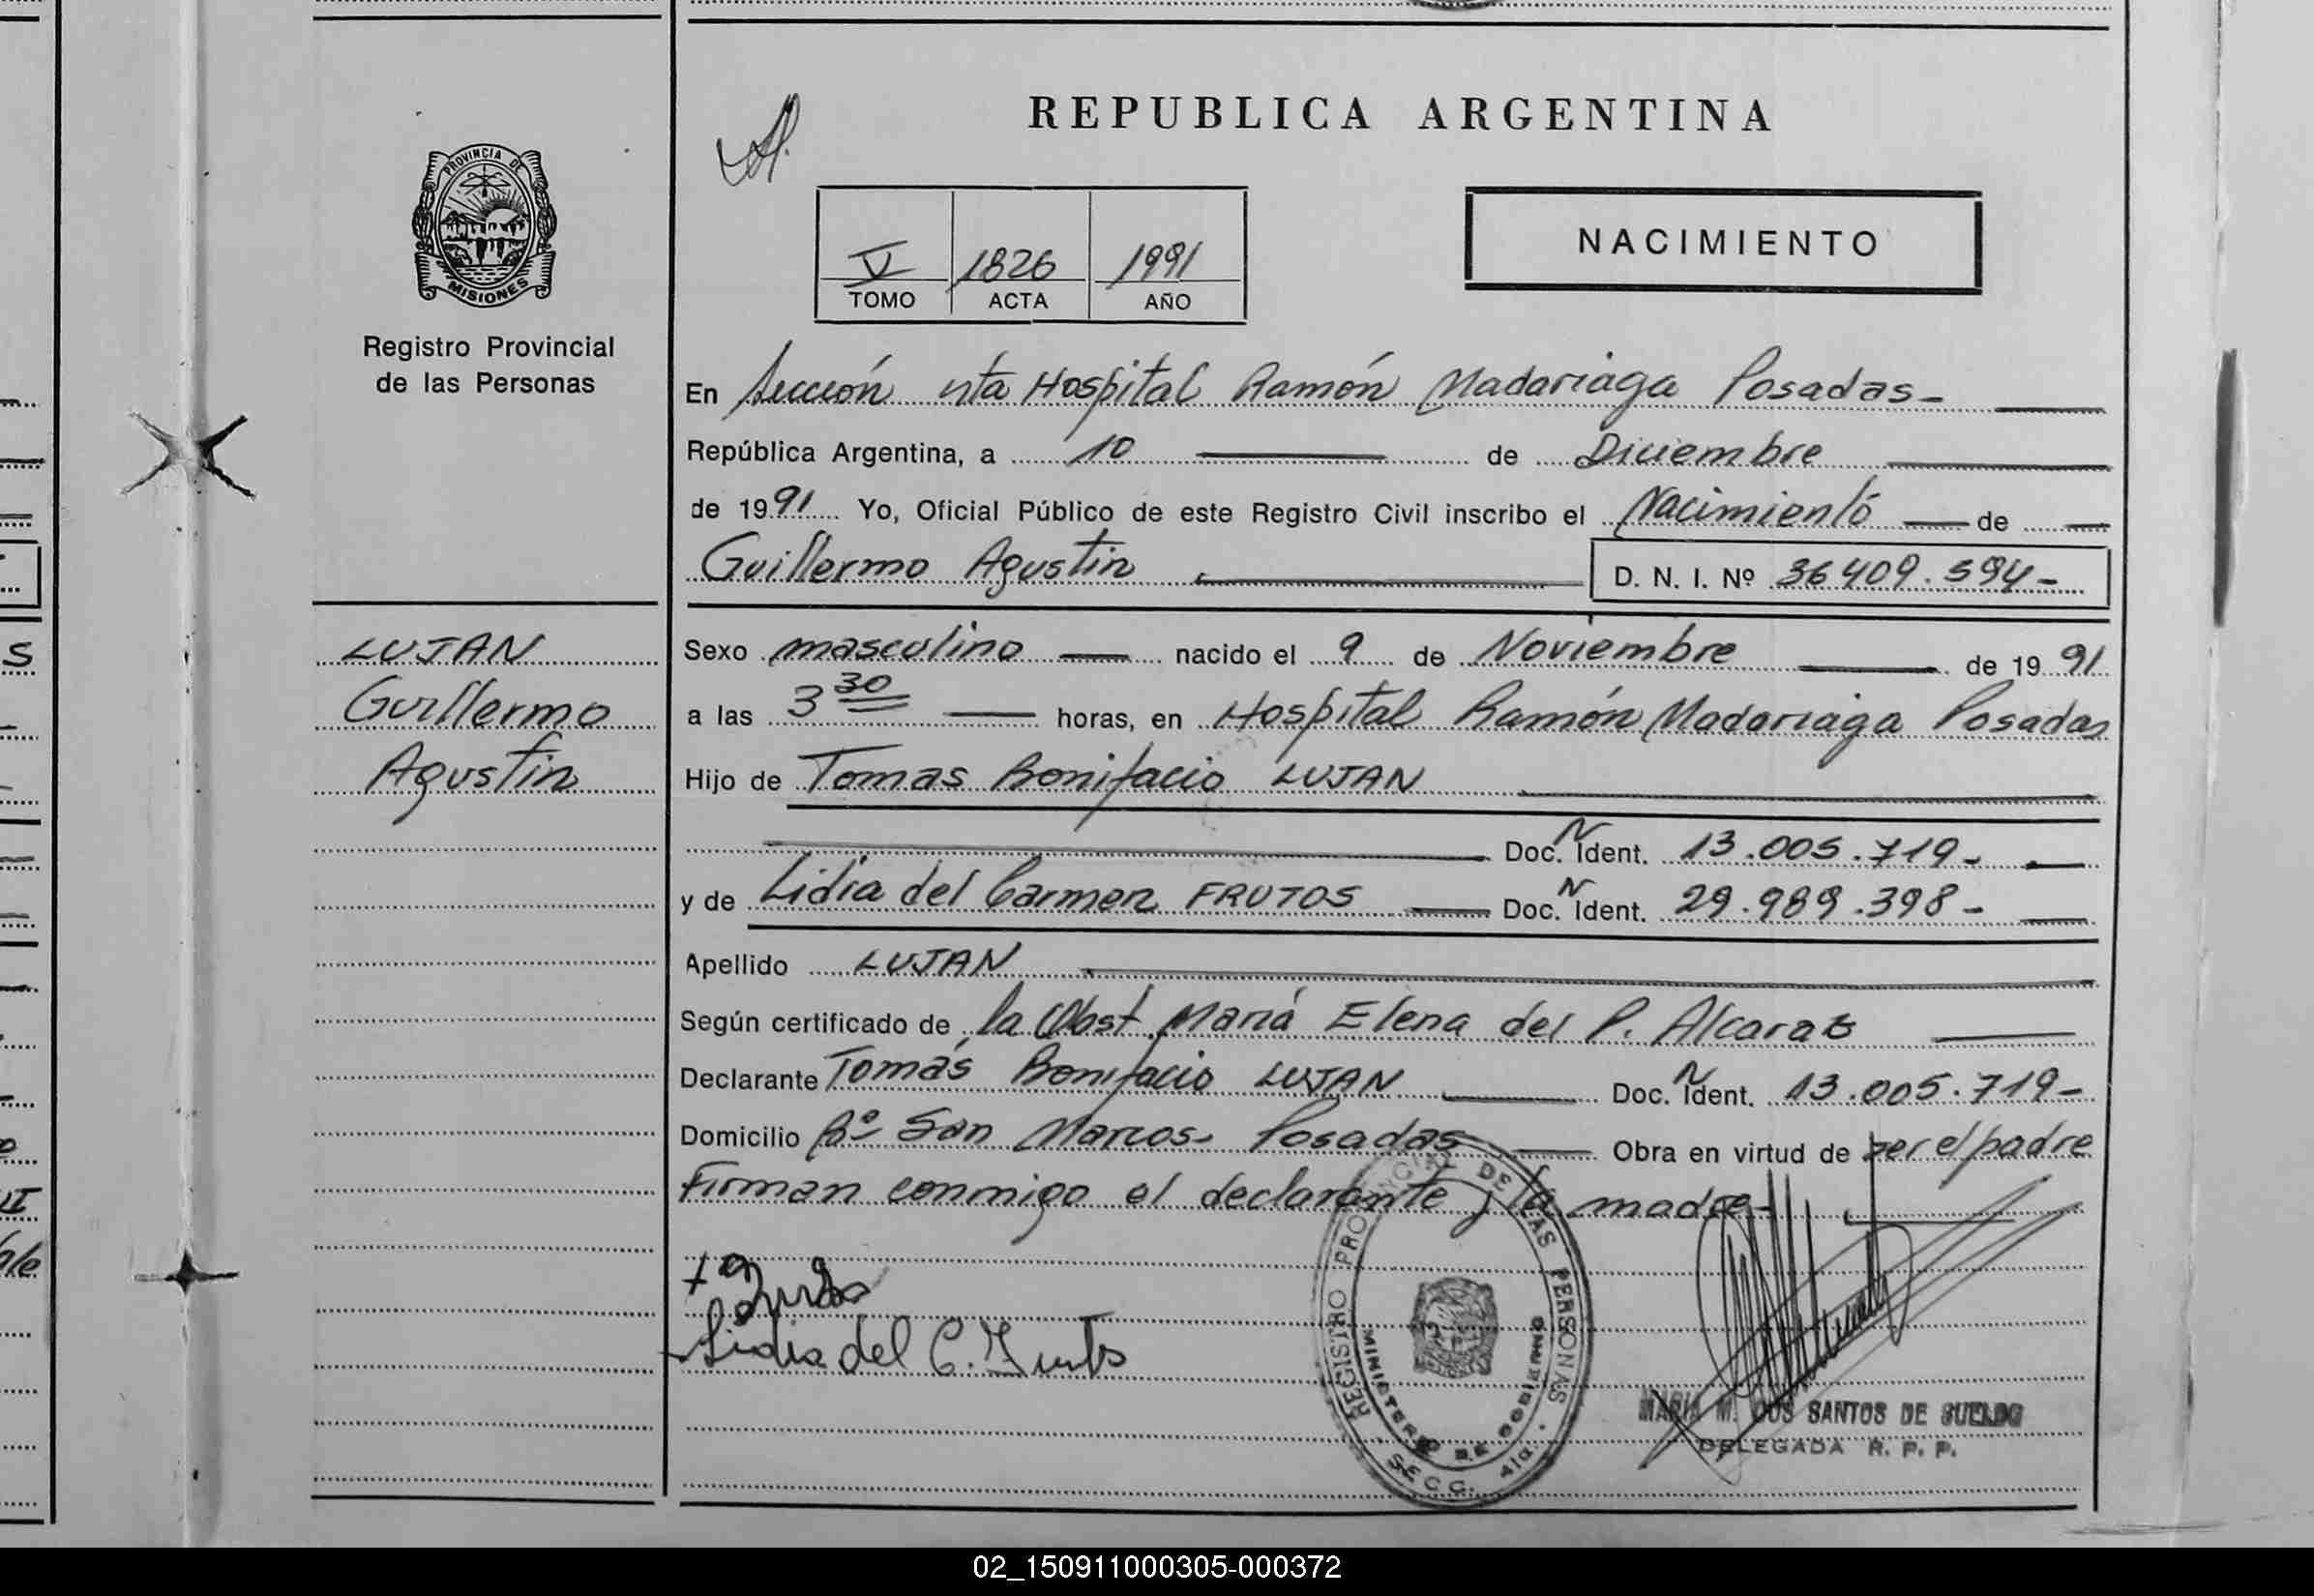 REPUBLICA ARGENTINA
PROVINCIA DE
MISIONES
Registro Provincial
de las Personas
V 1826 1991
TOMO ACTA AÑO
NACIMIENTO
En Sección 4ta Hospital Ramón Madariaga Posadas-
República Argentina, a 10 de Diciembre
de 1991 Yo, Oficial Público de este Registro Civil inscribo el Nacimiento de
Guillermo Agustin D. N. I. Nº 36409.594-
LUJAN
Guillermo
Agustin
Sexo masculino nacido el 9 de Noviembre de 1991
a las 3 30 horas, en Hospital Ramón Madariaga Posadas
Hijo de Tomas Bonifacio LUJAN
Doc. N Ident. 13.005.719-
y de Lidia del Carmen FRUTOS Doc. N Ident. 29.989.398-
Apellido LUJAN
Según certificado de la Obst María Elena del P. Alcaraz
Declarante Tomás Bonifacio LUJAN Doc. N Ident. 13.005.719-
Domicilio Bº San Marcos- Posadas Obra en virtud de ser el padre
Firman conmigo el declarante y la madre-
Lidia del C. Frutos
REGISTRO PROVINCIAL DE LAS PERSONAS
MINISTERIO DE GOBIERNO
SECC. 4ta.
MARIA M. DOS SANTOS DE SUELDO
DELEGADA R. P. P.
02_150911000305-000372